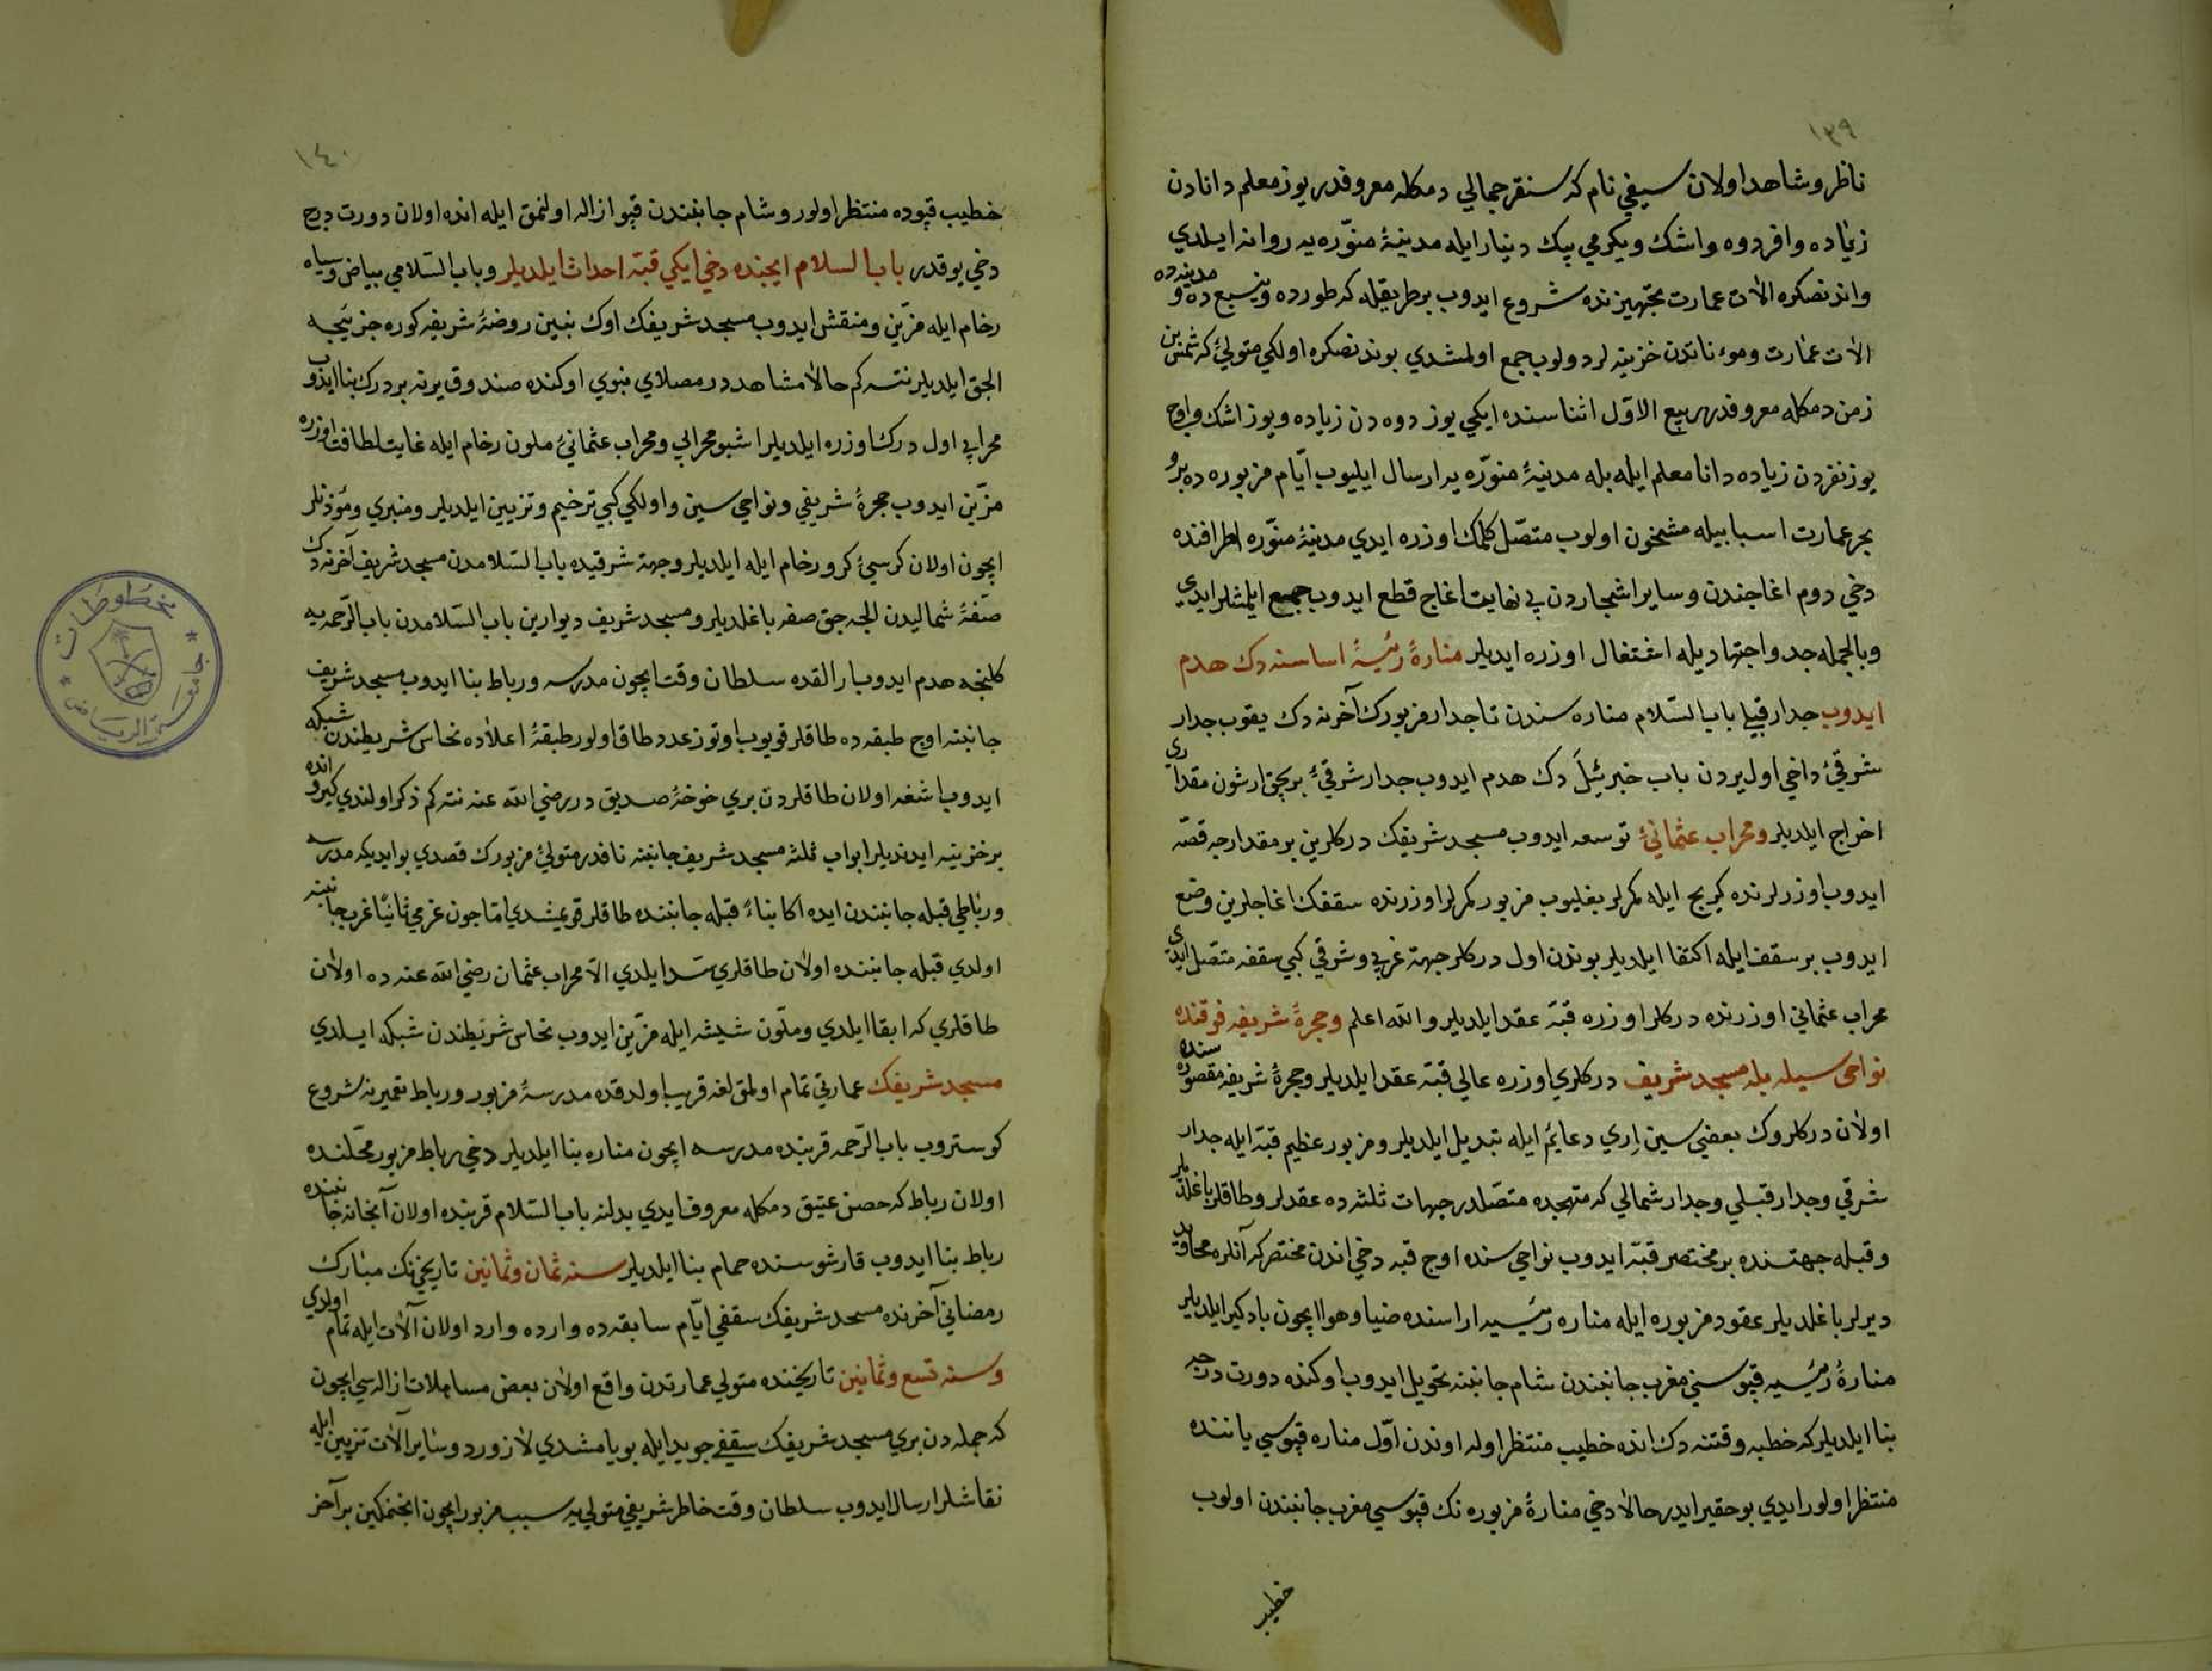 ١٣٩
ناظر وشاهد اولان سيفي نام كه سنقر جمالي دمكله معروفدر يوز معلم دانادن
زياده وافر دوه واشك ويكرمي بيك دينار ايله مدينهٔ منوّره يه روانه ايلدي
واندنصكره الات عمارت تجهيزنده شروع ايدوب بر طريقله كه طورده وينبع ده و مدينه ده
الات عمارت ومؤناتدن خزينه لر دولوب جمع اولمشدي بوندنصكره اولكي متولئ كه شمس بن
زمن دمكله معروفدر ربيع الاوّل اثناسنده ايكي يوز دوه دن زياده ويوز اشك واوچ
يوز نفردن زياده دانا معلم ايله بله مدينهٔ منوّره يه ارسال ايليوب ايّام مزبوره ده بر و
بحر عمارت اسبابيله مشحون اولوب متصّل كلمك اوزره ايدي مدينهٔ منوّره اطرافنده
دخي دوم اغاجندن وساير اشجاردن بي نهايت اغاج قطع ايدوب جمع ايلمشلر ايدي
وبالجمله جد واجتهاديله اشتغال اوزره ايديلر منارهٔ رئيسيهٔ اساسنه دك هدم
ايدوب جدار قبلئ باب السّلام مناره سندن تا جدار مزبورك آخرنه دك يقوب جدار
شرقئ داخي اول يردن باب جبرئيلَ دك هدم ايدوب جدار شرقئ بر بچق ارشون مقداري
اخراج ايلديلر ومحراب عثمانئ توسعه ايدوب مسجد شريفك دركلرين بر مقدارجه قصّه
ايدوب اوزرلرنده كيرج ايله كمرلر بغليوب مزبور كمرلر اوزرنده سقفك اغاجلرين وضع
ايدوب بر سقف ايله اكتفا ايلديلر بوندن اول دركلر جهة غربي وشرقي كبي سقفه متصّل ايدي
محراب عثماني اوزرنده دركلر اوزره قبّه عقد ايلديلر والله اعلم وحجرهٔ شريفه فوقنده
نواحي سيله بله مسجد شريف دركلري اوزره عالي قبّه عقد ايلديلر وحجرهٔ شريفه مقصوره سنده
اولان دركلروك بعضي سين اِري دعايمٔ ايله تبديل ايلديلر ومزبور عظيم قبّه ايله جدار
شرقي وجدار قبلي وجدار شمالي كه متهجده متصّلدر جهات ثلثه ده عقدلر وطاقلر باغلديلر
وقبله جهتنده بر مختصر قبّه ايدوب نواحي سنده اوچ قبه دخي اندن مختصر كه آنلره محاريب
ديرلر باغلديلر عقود مزبوره ايله مناره رئيسيه اراسنده ضيا وهوا ايچون بادكير ايلديلر
منارهٔ رئيسيه قپوسني مغرب جانبندن شام جانبنه تحويل ايدوب اوكنده دورت درجه
بنا ايلديلر كه خطبه وقتنه دك انده خطيب منتظر اوله اوندن اوّل مناره قپوسي ياننده
منتظر اولور ايدي بو حقير ايدر حالا دخي منارهٔ مزبوره نك قپوسي مغرب جانبندن اولوب
خطيب
١٤٠
خطيب قپوده منتظر اولور وشام جانبندن قپو ازاله اولنمق ايله انده اولان دورت درج
دخي يوقدر باب السلام ايچنده دخي ايكي قبّه احداث ايلديلر وباب السّلامي بياض وسياه
رخام ايله مزّين ومنقش ايدوب مسجد شريفك اوك بنين روضهٔ شريفه كوره جزئيجه
الچق ايلديلر نته كم حالا مشاهددر مصلاي نبوي اوكنده صندوق يرنه بر درك بنا ايدوب
محرابي اول درك اوزره ايلديلر اشبو محرابي ومحراب عثمانئ ملون رخام ايله غايت لطافت اوزره
مزّين ايدوب حجرهٔ شريفي ونواحي سين واولكي كبي ترخيم وتزيين ايلديلر ومنبري ومؤذنلر
ايچون اولان كرسئ كرو رخام ايله ايلديلر وجهة شرقيده باب السّلامدن مسجد شريف آخرنه دك
صفّهٔ شماليدن الچه جق صفه باغلديلر ومسجد شريف ديوارين باب السّلامدن باب الرّحمه يه
كلنجه هدم ايدوب ار القده سلطان وقت ايچون مدرسه ورباط بنا ايدوب مسجد شريف
جانبنه اوچ طبقه ده طاقلر قويوب اوتوز عدد طاق اولور طبقهٔ اعلاده نحاس شريطندن شبكه
ايدوب اشغه اولان طاقلردن بري خوخهٔ صديق در رضي الله عنه نته كم ذكر اولندي كيرو انده
بر خزينه ايدنديلر ابواب ثلثه مسجد شريف جانبنه نافدر متولئ مزبورك قصدي بو ايديكه مدرسه
ورباطي قبله جانبندن ايده اكا بناءً قبله جانبنده طاقلر قومشدي امّا چون عزمي ثانيًا غرب جانبنه
اولدي قبله جانبنده اولان طاقلري سّد ايلدي الاّ محراب عثمان رضي الله عنه ده اولان
طاقلري كه ابقا ايلدي وملّون شيشه ايله مزّين ايدوب نحاس شريطندن شبكه ايلدي
مسجد شريفك عمارتي تمام اولمقلغه قريب اولدقده مدرسهٔ مزبور ورباط تعميرنه شروع
كوستروب باب الرّحمه قربنده مدرسه ايچون مناره بنا ايلديلر دخي رباط مزبور محّلنده
اولان رباط كه حصن عتيق دمكله معروف ايدي بدلنه باب السّلام قربنده اولان آبخانه جانبنده
رباط بنا ايدوب قارشوسنده حمام بنا ايلديلر سنه ثمان وثمانين تاريخنك مبارك
رمضاني آخرنده مسجد شريفك سقفي ايّام سابقده وارده وارد اولان آلات ايله تمام اولدي
وسنه تسع وثمانين تاريخنده متولي عمارتدن واقع اولان بعض مساهلات ازاله سي ايچون
كه جمله دن بري مسجد شريفك سقفي جويد ايله بويامشدي لازورد وساير آلات تزيين ايله
نقاشلر ارسال ايدوب سلطان وقت خاطر شريفي متولي يه سبب مزبور ايچون انجنمكين بر آخر
مخطوطات
جامعة الرياض